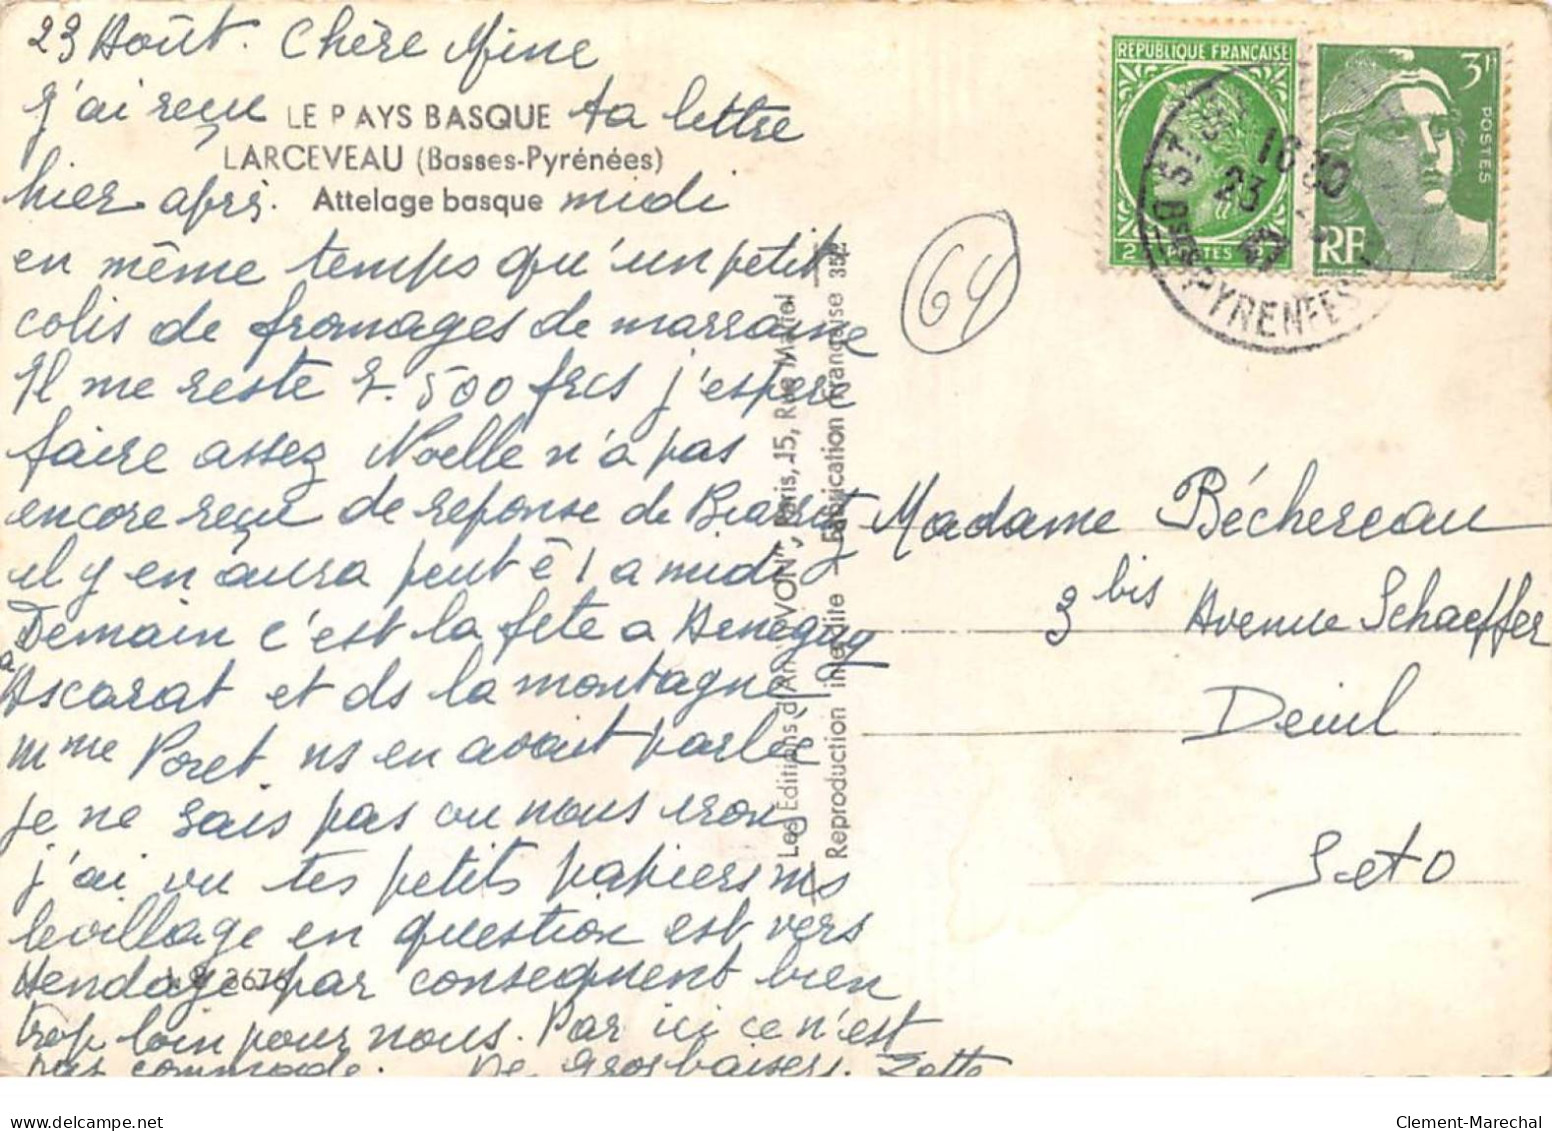 23 Août. Chère Mine
j'ai reçu ta lettre
LE PAYS BASQUE
LARCEVEAU (Basses-Pyrénées)
Attelage basque
hier après. midi
en même temps qu'un petit
colis de fromages de marraine
Il me reste 7.500 frcs j'espère
faire assez Noelle n'a pas
encore reçu de reponse de Biarritz
il y en aura peut ê l a midi
Demain c'est la fête a
a Ascarat et ds la montagne
Mme Poret ns en avait parlé
je ne sais pas ou nous irons
j'ai vu tes petits papiers ms
le village en question est vers
Hendaye par consequent bien
trop loin pour nous. Par ici ce n'est
pas commode. De gros baisers. Zette
3676
Les Editions d'Art YVON, Paris, 15, Rue Martel
Reproduction interdite - Fabrication Française 352
64
RÉPUBLIQUE FRANÇAISE
2F POSTES
3F
POSTES
RF
16 30
23
BSES PYRENEES
Madame Béchereau
3 bis Avenue Schaeffer
Deuil
S et O
Clement-Marechal